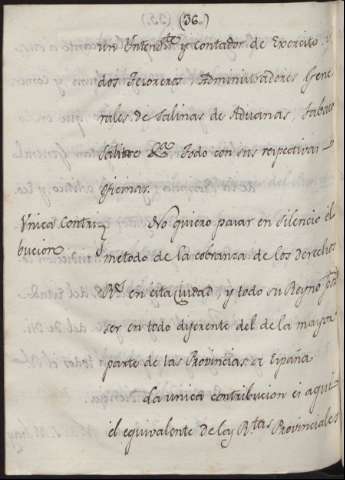 (36.)
un Yntend.te y Contador de Exercito y
dos Tesoreros Administradores Gene
rales de Salinas de Aduanas, Tabaco
Salitre &a. todo con sus respectivas
Oficinas.
Vnica Contri
bucion.
No quiero pasar en silencio el
metodo de la cobranza de los derechos
R.s en esta Ciudad y todo su Reyno p.r
ser en todo diferente del de la mayor
parte de las Provincias de España
La unica contribucion es aqui
el equivalente de las R.tas Provinciales